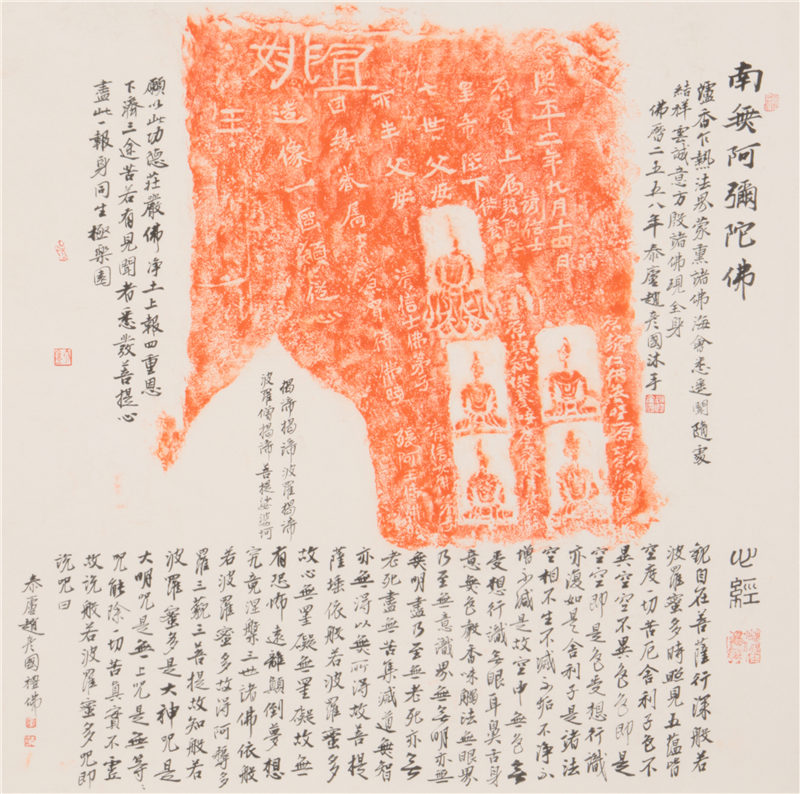 南無阿彌陀佛
爐香乍熱法界蒙熏諸佛海會悉遙聞隨處
結祥雲誠意方殷諸佛現全身
佛曆二五五八年泰廬趙彥國沐手
熙平二年九月十四日
皇帝陛下
七世父母
亦生父母
因緣眷屬
造像一區願從心
姚
王
願以此功德莊嚴佛淨土上報四重恩
下濟三途苦若有見聞者悉發菩提心
盡此一報身同生極樂國
揭諦揭諦波羅揭諦
波羅僧揭諦菩提娑婆訶
心經
觀自在菩薩行深般若
波羅蜜多時照見五蘊皆
空度一切苦厄舍利子色不
異空空不異色色即是
空空即是色受想行識
亦復如是舍利子是諸法
空相不生不滅不垢不淨不
增不減是故空中無色無
受想行識無眼耳鼻舌身
意無色聲香味觸法無眼界
乃至無意識界無無明亦無
無明盡乃至無老死亦無
老死盡無苦集滅道無智
亦無得以無所得故菩提
薩埵依般若波羅蜜多
故心無罣礙無罣礙故無
有恐怖遠離顛倒夢想
究竟涅槃三世諸佛依般
若波羅蜜多故得阿耨多
羅三藐三菩提故知般若
波羅蜜多是大神咒是
大明咒是無上咒是無等等
咒能除一切苦真實不虛
故說般若波羅蜜多咒即
說咒曰
泰廬趙彥國禮佛